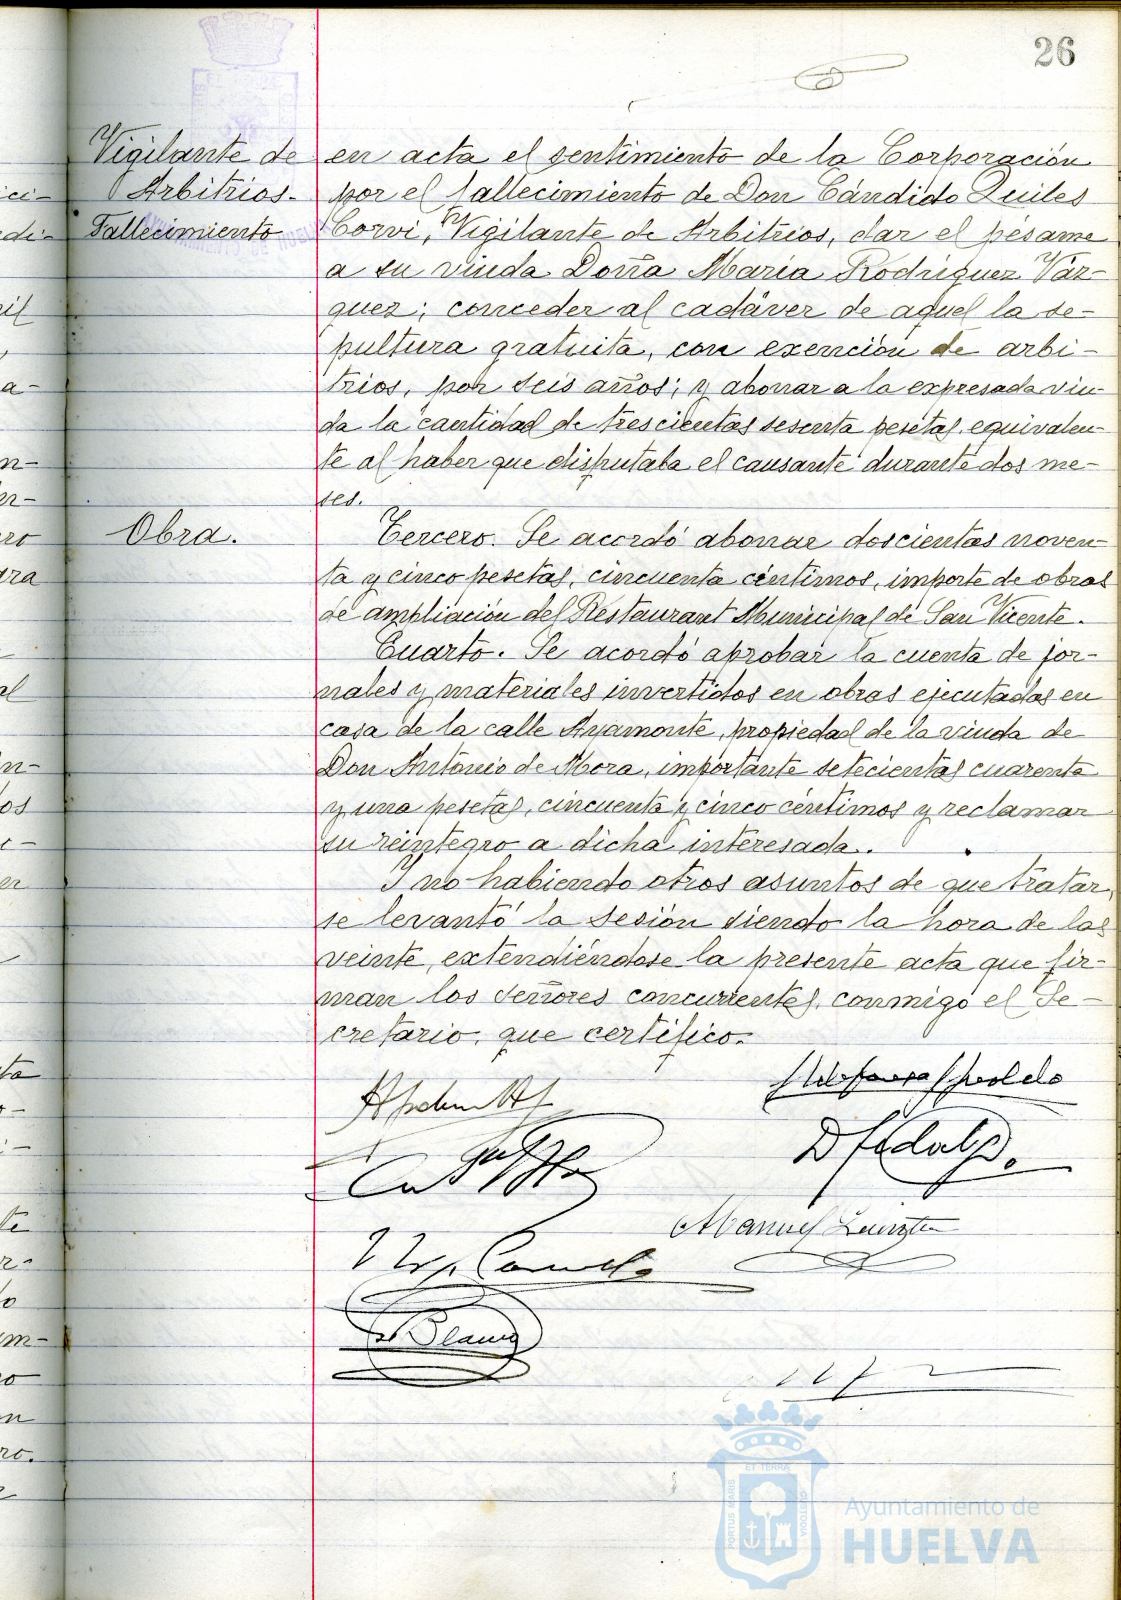 26
Vigilante de
Arbitrios.
Fallecimiento
en acta el sentimiento de la Corporación
por el fallecimiento de Don Cándido Quiles
Corvi, Vigilante de Arbitrios, dar el pésame
a su viuda Doña María Rodríguez Váz-
quez; conceder al cadáver de aquel la se-
pultura gratuita, con exención de arbi-
trios, por seis años; y abonar a la expresada viu-
da la cantidad de trescientas sesenta pesetas equivalen-
te al haber que disfrutaba el causante durante dos me-
ses.
Obra.
Tercero. Se acordó abonar doscientas noven-
ta y cinco pesetas, cincuenta céntimos, importe de obras
de ampliación del Restaurant Municipal de San Vicente.
Cuarto. Se acordó aprobar la cuenta de jor-
nales y materiales invertidos en obras ejecutadas en
casa de la calle Ayamonte, propiedad de la viuda de
Don Antonio de Mora, importante setecientas cuarenta
y una pesetas, cincuenta y cinco céntimos y reclamar
su reintegro a dicha interesada.
Y no habiendo otros asuntos de que tratar,
se levantó la sesión siendo la hora de las
veinte, extendiéndose la presente acta que fir-
man los señores concurrentes, conmigo el Se-
cretario, que certifico.
Manuel
Blanco
PORTUS MARIS
ET TERRÆ
CUSTODIA
Ayuntamiento de
HUELVA